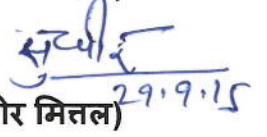 सुधीर
29.9.15
ोर मित्तल)